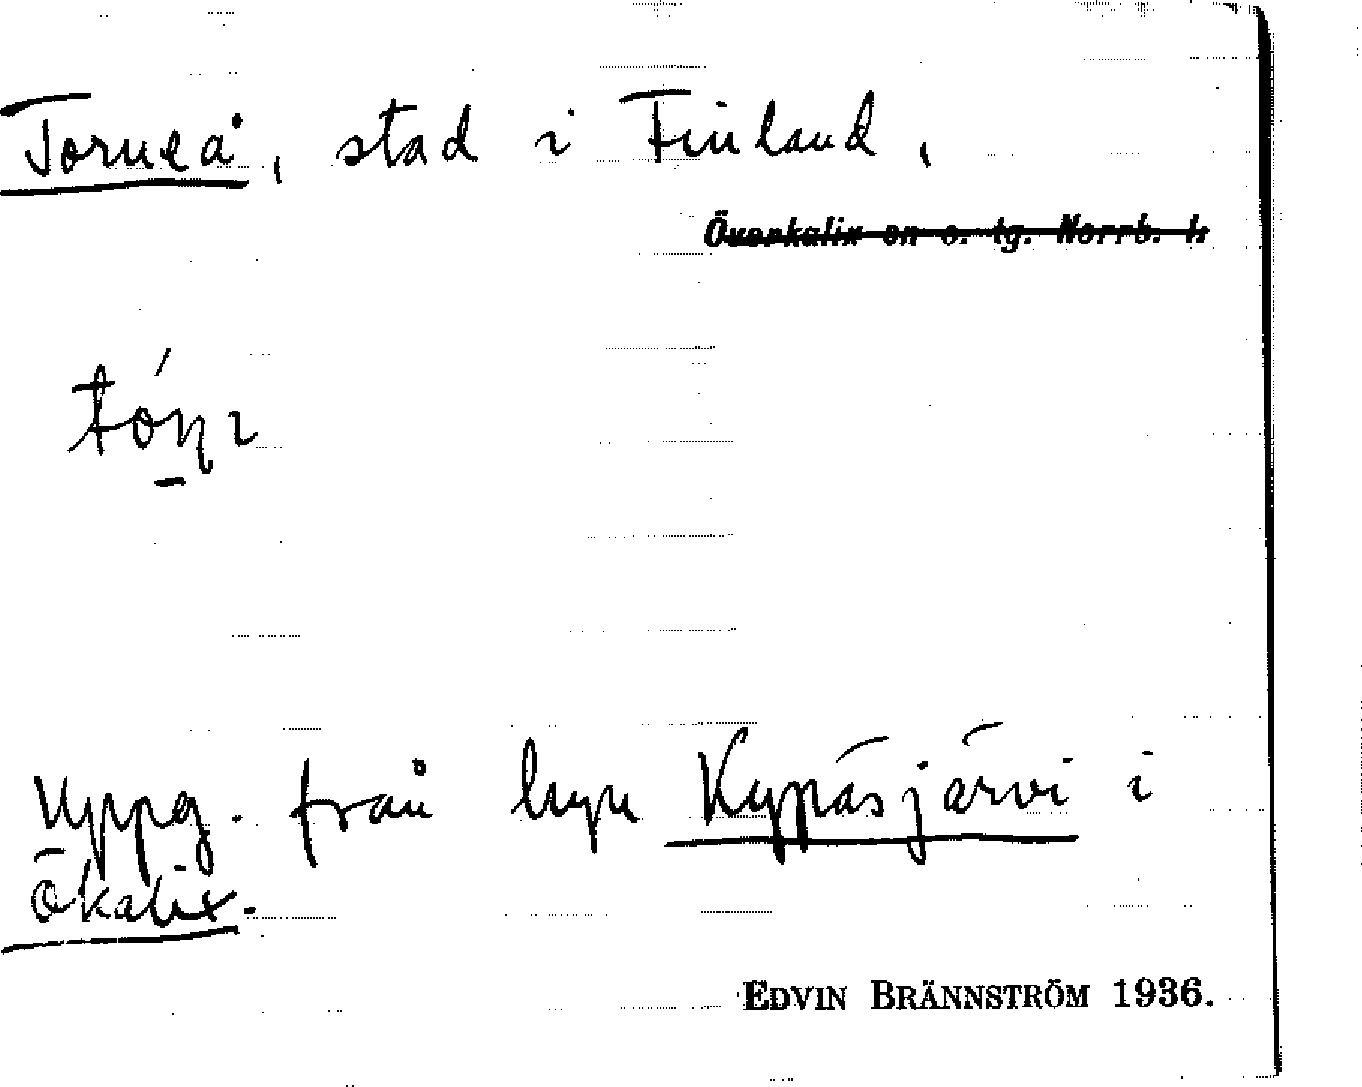 Torneå, stad i Finland,
Överkalix sn o. tg. Norrb. l:
tóṇɩ
Uppg. från byn Kypäsjärvi i
Ökalix.
EDVIN BRÄNNSTRÖM 1936.